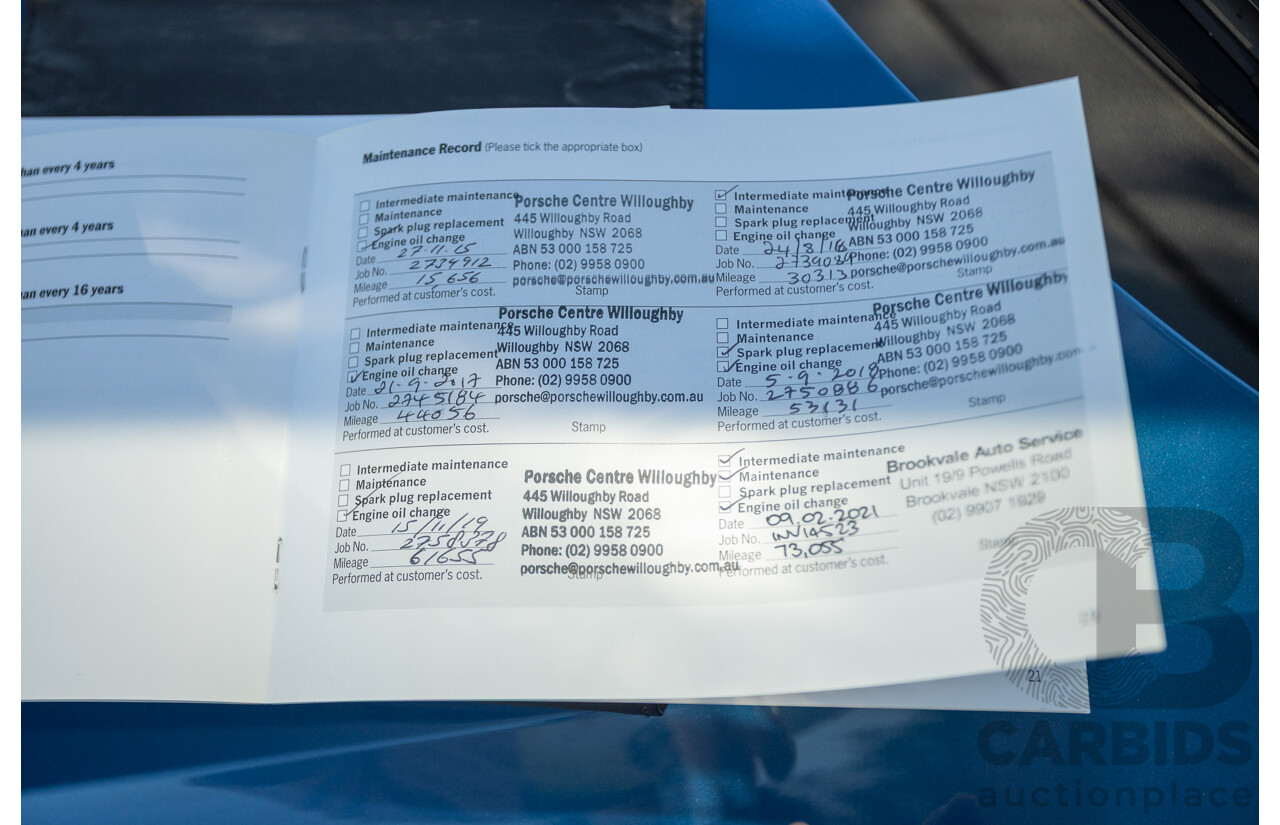 han every 4 years
an every 4 years
an every 16 years
Maintenance Record (Please tick the appropriate box)
Intermediate maintenance
Maintenance
Spark plug replacement
Engine oil change
Date 27.11.15
Job No. 2734912
Mileage 15,656
Performed at customer's cost.
Porsche Centre Willoughby
445 Willoughby Road
Willoughby NSW 2068
ABN 53 000 158 725
Phone: (02) 9958 0900
porsche@porschewilloughby.com.au
Stamp
Intermediate maintenance
Maintenance
Spark plug replacement
Engine oil change
Date 24/8/16
Job No.
Mileage 30313
Performed at customer's cost.
Porsche Centre Willoughby
445 Willoughby Road
Willoughby NSW 2068
ABN 53 000 158 725
Phone: (02) 9958 0900
porsche@porschewilloughby.com.au
Stamp
Intermediate maintenance
Maintenance
Spark plug replacement
Engine oil change
Date 21.9.2017
Job No. 2745184
Mileage 44056
Performed at customer's cost.
Porsche Centre Willoughby
445 Willoughby Road
Willoughby NSW 2068
ABN 53 000 158 725
Phone: (02) 9958 0900
porsche@porschewilloughby.com.au
Stamp
Intermediate maintenance
Maintenance
Spark plug replacement
Engine oil change
Date 5.9.2018
Job No. 2750886
Mileage 53131
Performed at customer's cost.
Porsche Centre Willoughby
445 Willoughby Road
Willoughby NSW 2068
ABN 53 000 158 725
Phone: (02) 9958 0900
porsche@porschewilloughby.com
Stamp
Intermediate maintenance
Maintenance
Spark plug replacement
Engine oil change
Date 15/11/19
Job No. 2758578
Mileage 61655
Performed at customer's cost.
Porsche Centre Willoughby
445 Willoughby Road
Willoughby NSW 2068
ABN 53 000 158 725
Phone: (02) 9958 0900
porsche@porschewilloughby.com.au
Stamp
Intermediate maintenance
Maintenance
Spark plug replacement
Engine oil change
Date 09.02.2021
Job No. INV14523
Mileage 73,055
Performed at customer's cost.
Brookvale Auto Service
Unit 19/9 Powells Road
Brookvale NSW 2100
(02) 9907 1929
Stamp
21
CB
CARBIDS
auctionplace